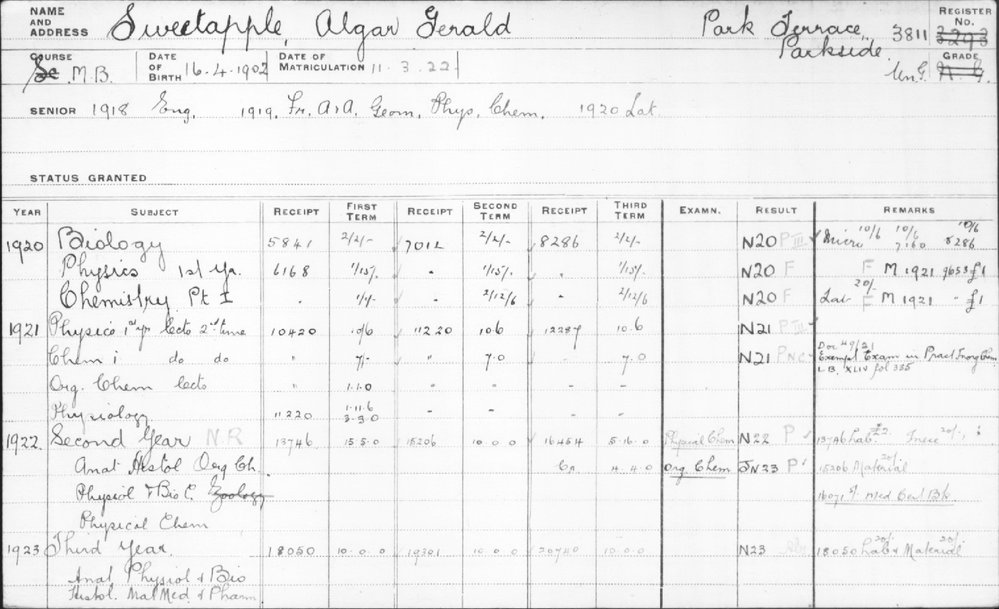 NAME AND ADDRESS Sweetapple, Algar Gerald Park Terrace, Parkside. 3811 REGISTER No. 3293
COURSE Sc M.B. DATE OF BIRTH 16.4.1902 DATE OF MATRICULATION 11.3.221 UnG. GRADE N.G.
SENIOR 1918 Eng. 1919, Fr. A&A, Geom, Phys, Chem, 1920 Lat.
STATUS GRANTED
YEAR SUBJECT RECEIPT FIRST TERM RECEIPT SECOND TERM RECEIPT THIRD TERM EXAMN. RESULT REMARKS
1920 Biology 5841 2/2/- 7012 2/2/- 8286 2/2/- N20 P III Micro 10/6 10/6 7160 10/6 8286
Physics 1st Yr. 6168 1/15/- " 1/15/- " 1/15/- N20 F F M 1921 9653 £1
Chemistry Pt I " 1/1/- " 2/12/6 " 2/12/6 N20 F Lat 20/- F M 1921 " £1
1921 Physics 1st yr lects 2nd time 10420 10/6 11220 10.6 12287 10.6 N21 P III
Chem i do do " 7/- " 7.0 " 7.0 N21 PNC Doc 49/21 Exempt Exam in Pract Inorg Chem L.B. XLIV fol 335
Org. Chem lects " 1.1.0 " - " -
Physiology 11220 1.11.6 3.3.0 - - - -
1922 Second Year NR 13746 15.5.0 15206 10.0.0 16454 5.16.0 Physical Chem N22 P 13746 Lab. £2. 20/-
Anat Histol Org Ch. Cr. 4.4.0 Org. Chem JN23 P 15206 Material 20/-
Physiol & Bio C. Zoology 16071 Med Cert Bk
Physical Chem
1923 Third Year. 18050 10.0.0 19301 10.0.0 20740 10.0.0 N23 18050 Lab 20/- & Material 20/-
Anat Physiol & Bio
Histol. Mat Med & Pharm